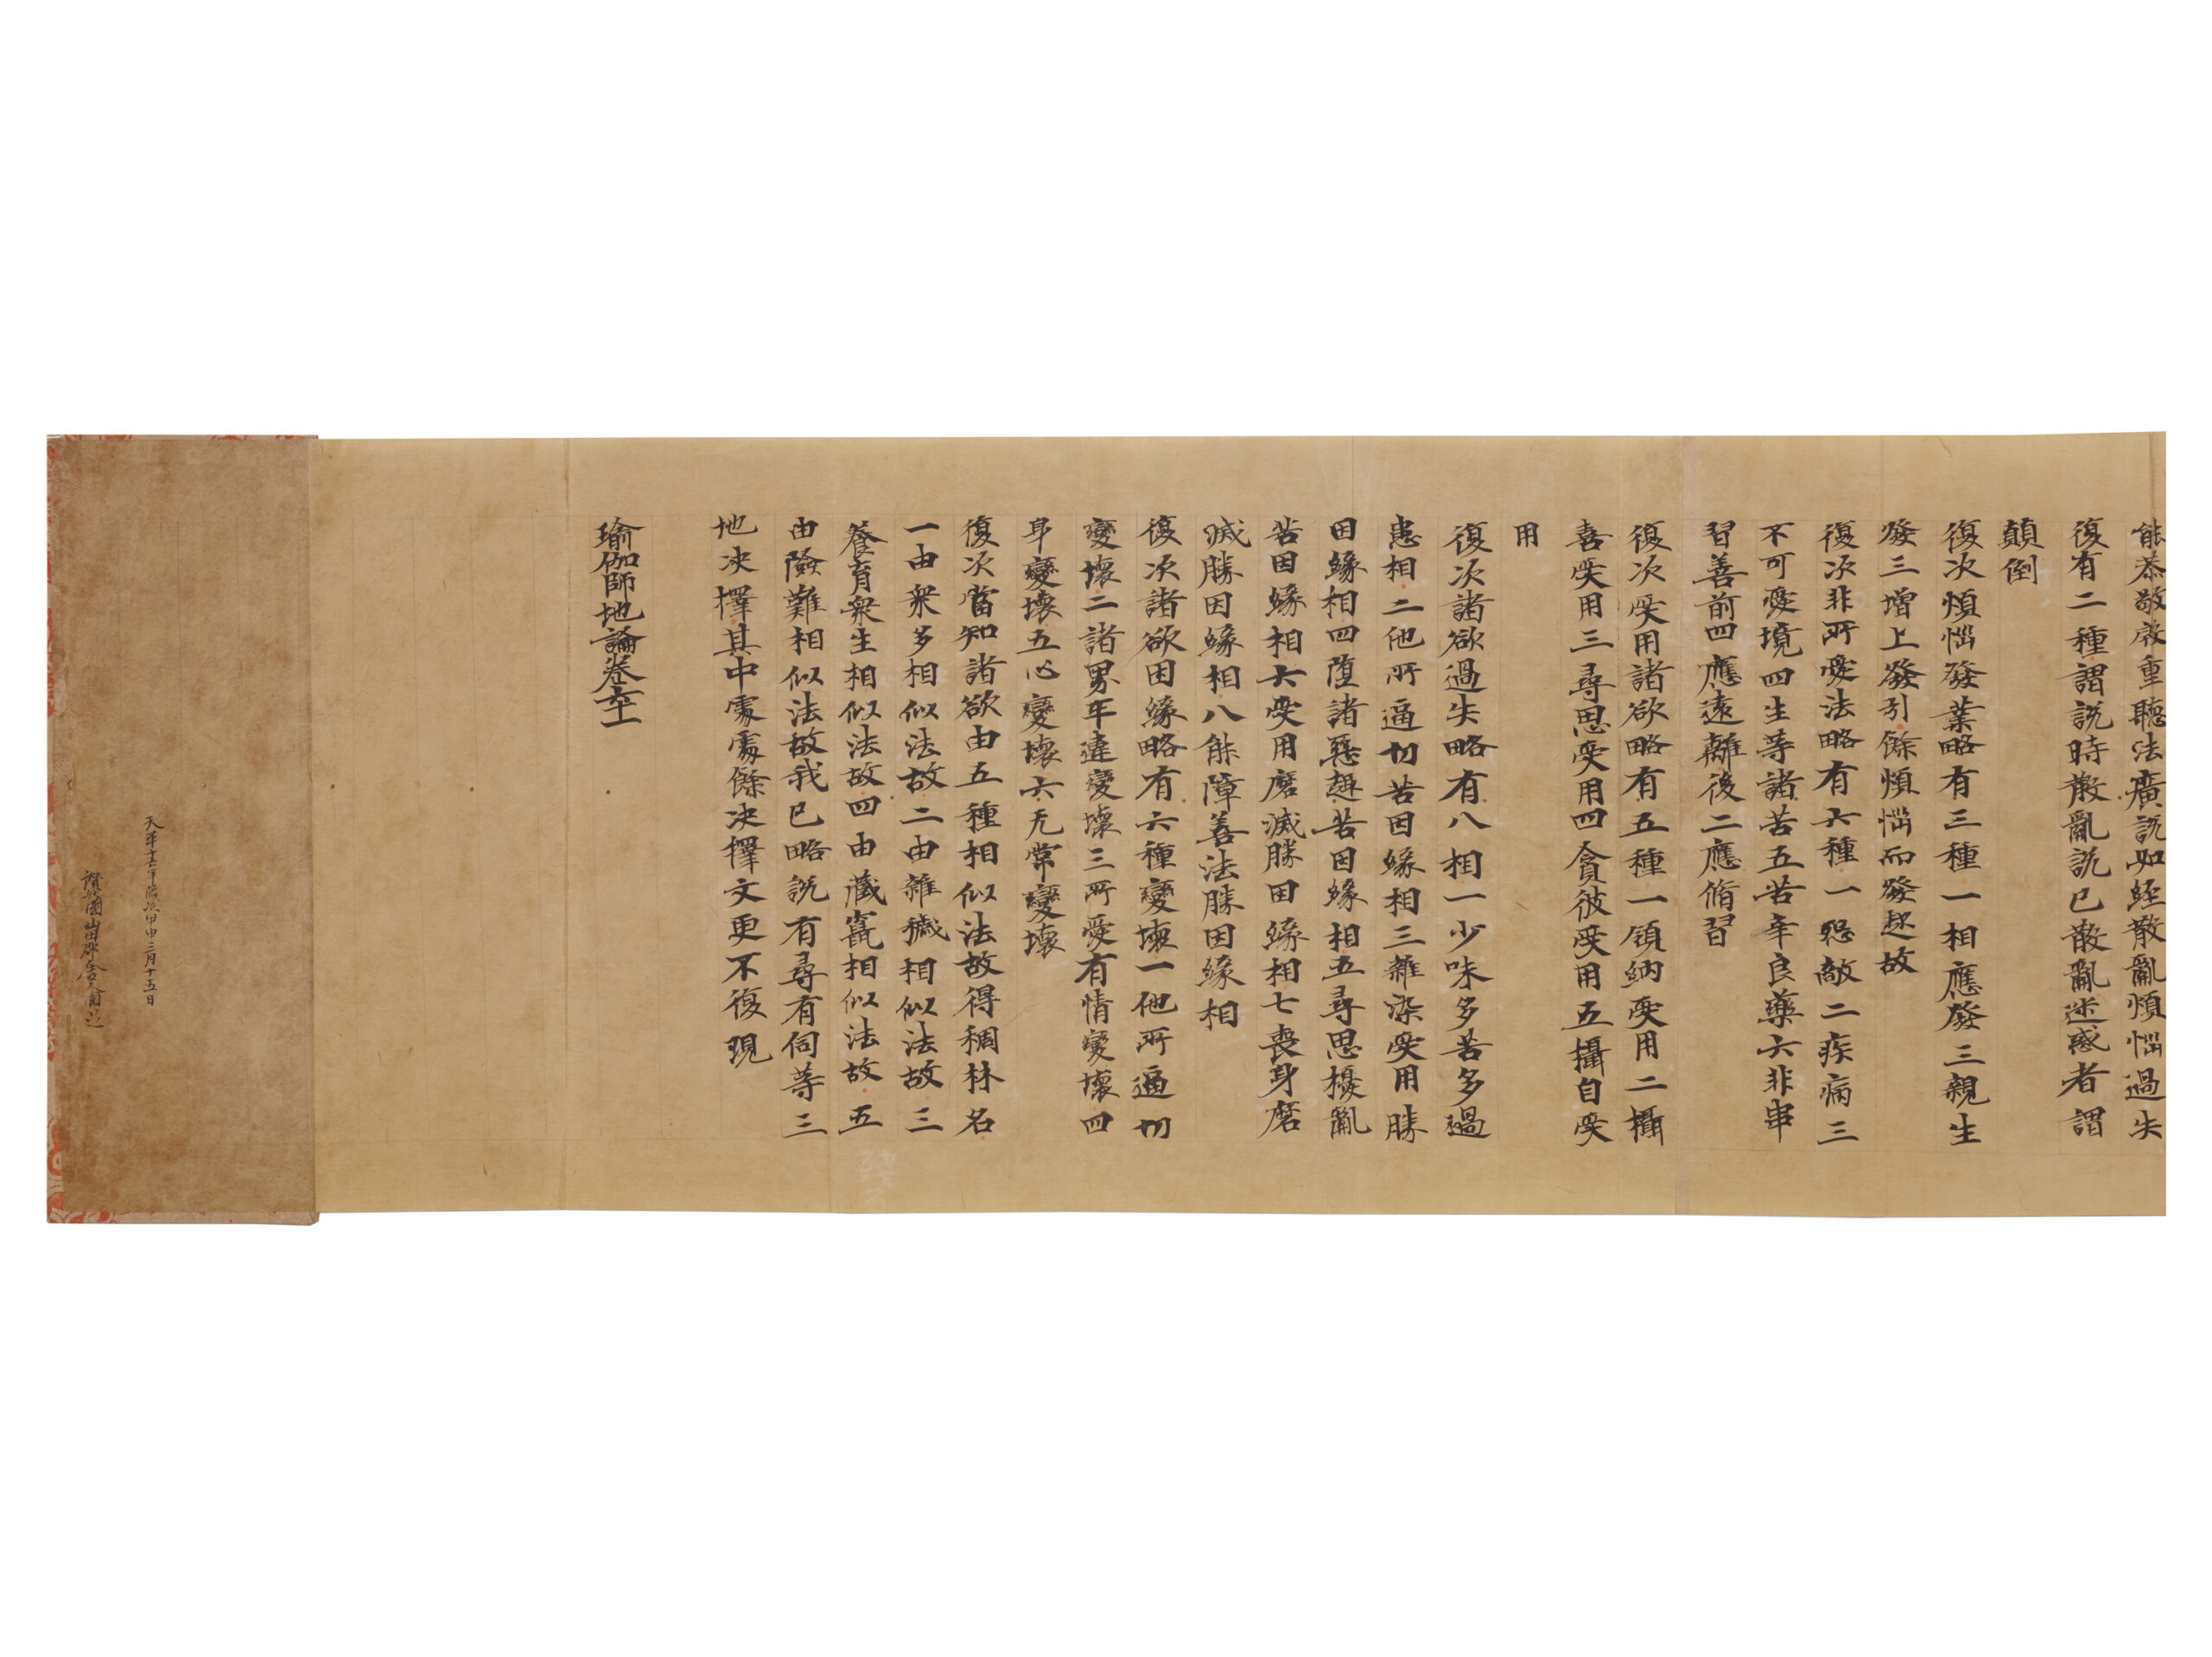 能恭敬慇重聽法廣説如經散亂煩惱過失
復有二種謂説時散亂説已散亂迷惑者謂
顛倒
復次煩惱發業略有三種一相應發二親生
發三增上發引餘煩惱而發起故
復次非所愛法略有六種一怨敵二疾病三
不可愛境四生等諸苦五苦辛良藥六非串
習善前四應遠離後二應脩習
復次受用諸欲略有五種一領納受用二攝
喜受用三尋思受用四貪彼受用五攝自受
用
復次諸欲過失略有八相一少味多苦多過
患相二他所逼切苦因緣相三雜染受用勝
因緣相四墮諸惡趣苦因緣相五尋思擾亂
苦因緣相六受用磨滅勝因緣相七喪身磨
滅勝因緣相八能障善法勝因緣相
復次諸欲因緣略有六種變壞一他所逼切
變壞二諸界乖違變壞三所愛有情變壞四
身變壞五心變壞六无常變壞
復次當知諸欲由五種相似法故得稠林名
一由衆多相似法故二由雜穢相似法故三
養育衆生相似法故四由藏竄相似法故五
由險難相似法故我已略説有尋有伺等三
地決擇其中處處餘決擇文更不復現
瑜伽師地論卷六十一
天平十六年歳次甲申三月十五日
讃岐國山田郡舍人